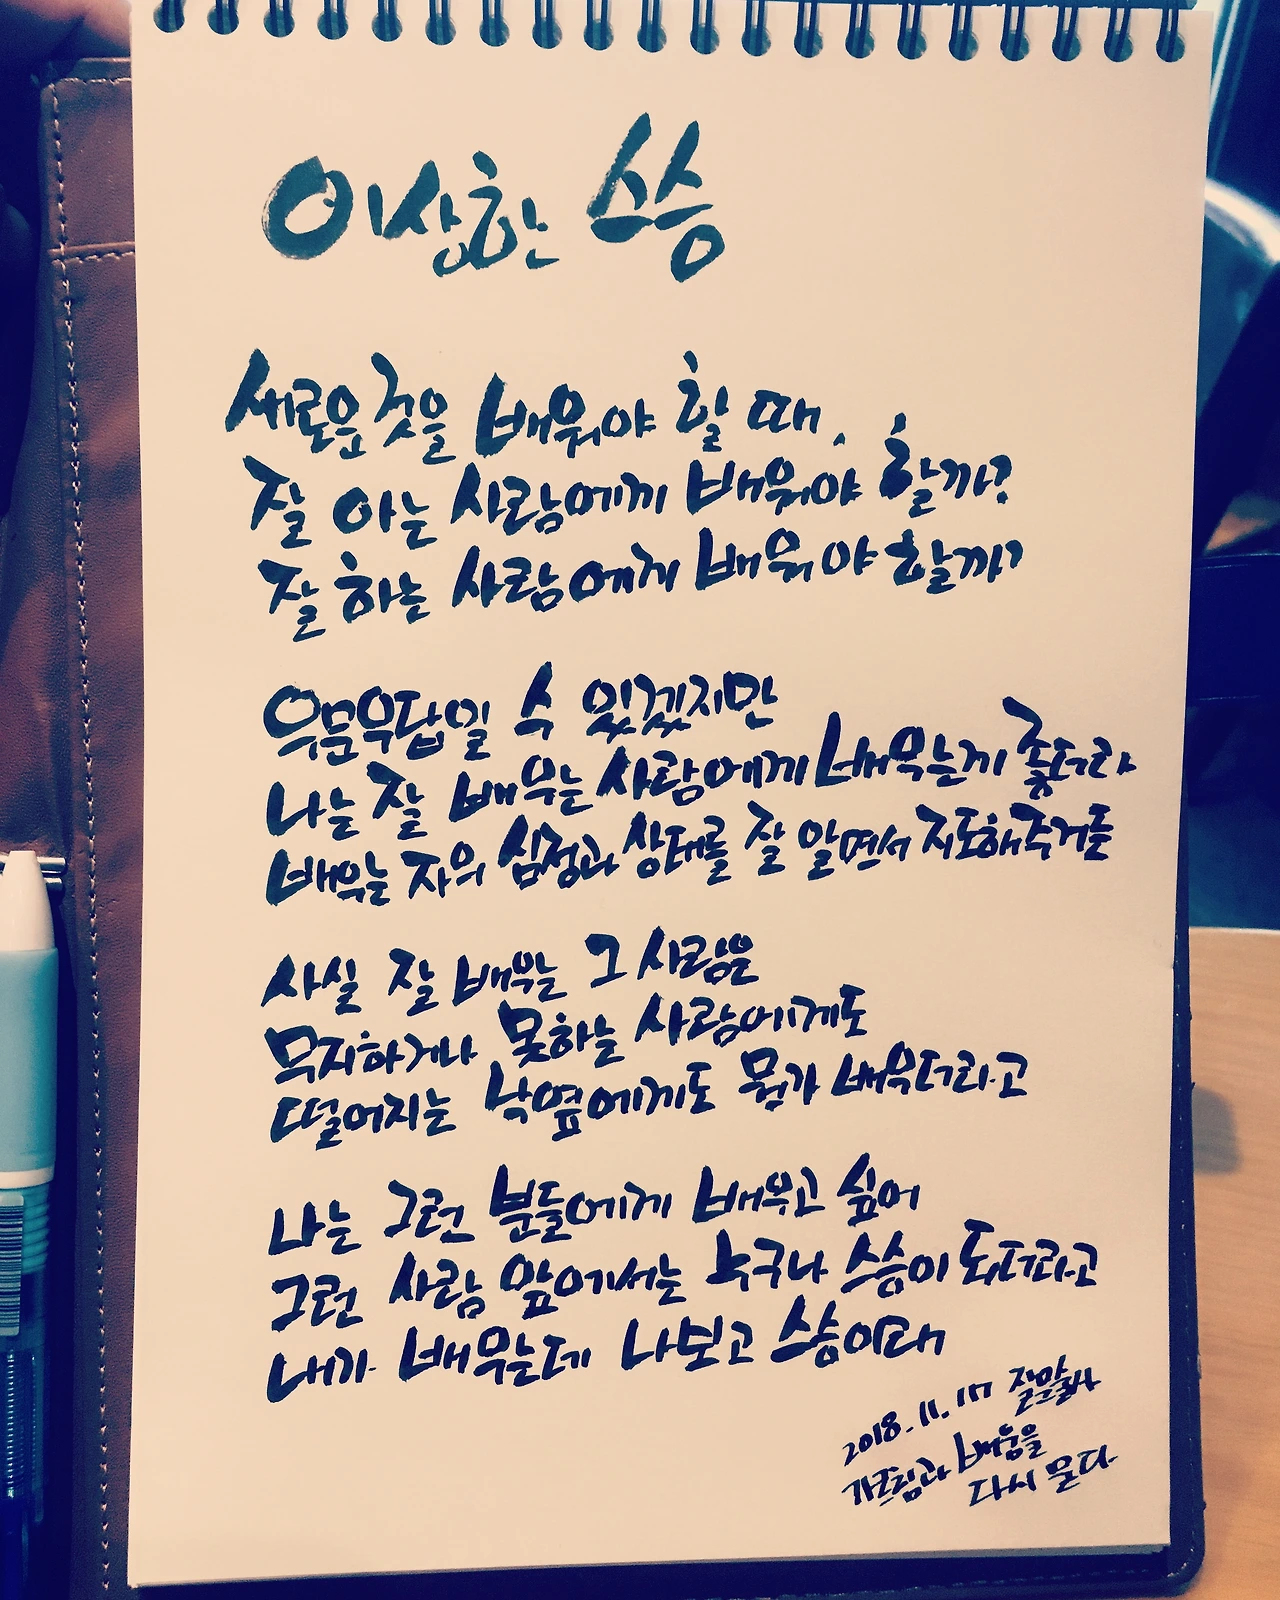 이상한 스승
새로운 것을 배워야 할 때,
잘 아는 사람에게 배워야 할까?
잘 하는 사람에게 배워야 할까?
우문우답일 수 있겠지만
나는 잘 배우는 사람에게 배우는게 좋더라
배우는 자의 심정과 상태를 잘 알면서 지도해주거든
사실 잘 배우는 그 사람은
무지하거나 못하는 사람에게도
떨어지는 낙엽에게도 뭔가 배우더라고
나는 그런 분들에게 배우고 싶어
그런 사람 앞에서는 누구나 스승이 되더라고
내가 배우는데 나보고 스승이래
2018.11.17
가르침과 배움을
다시 묻다